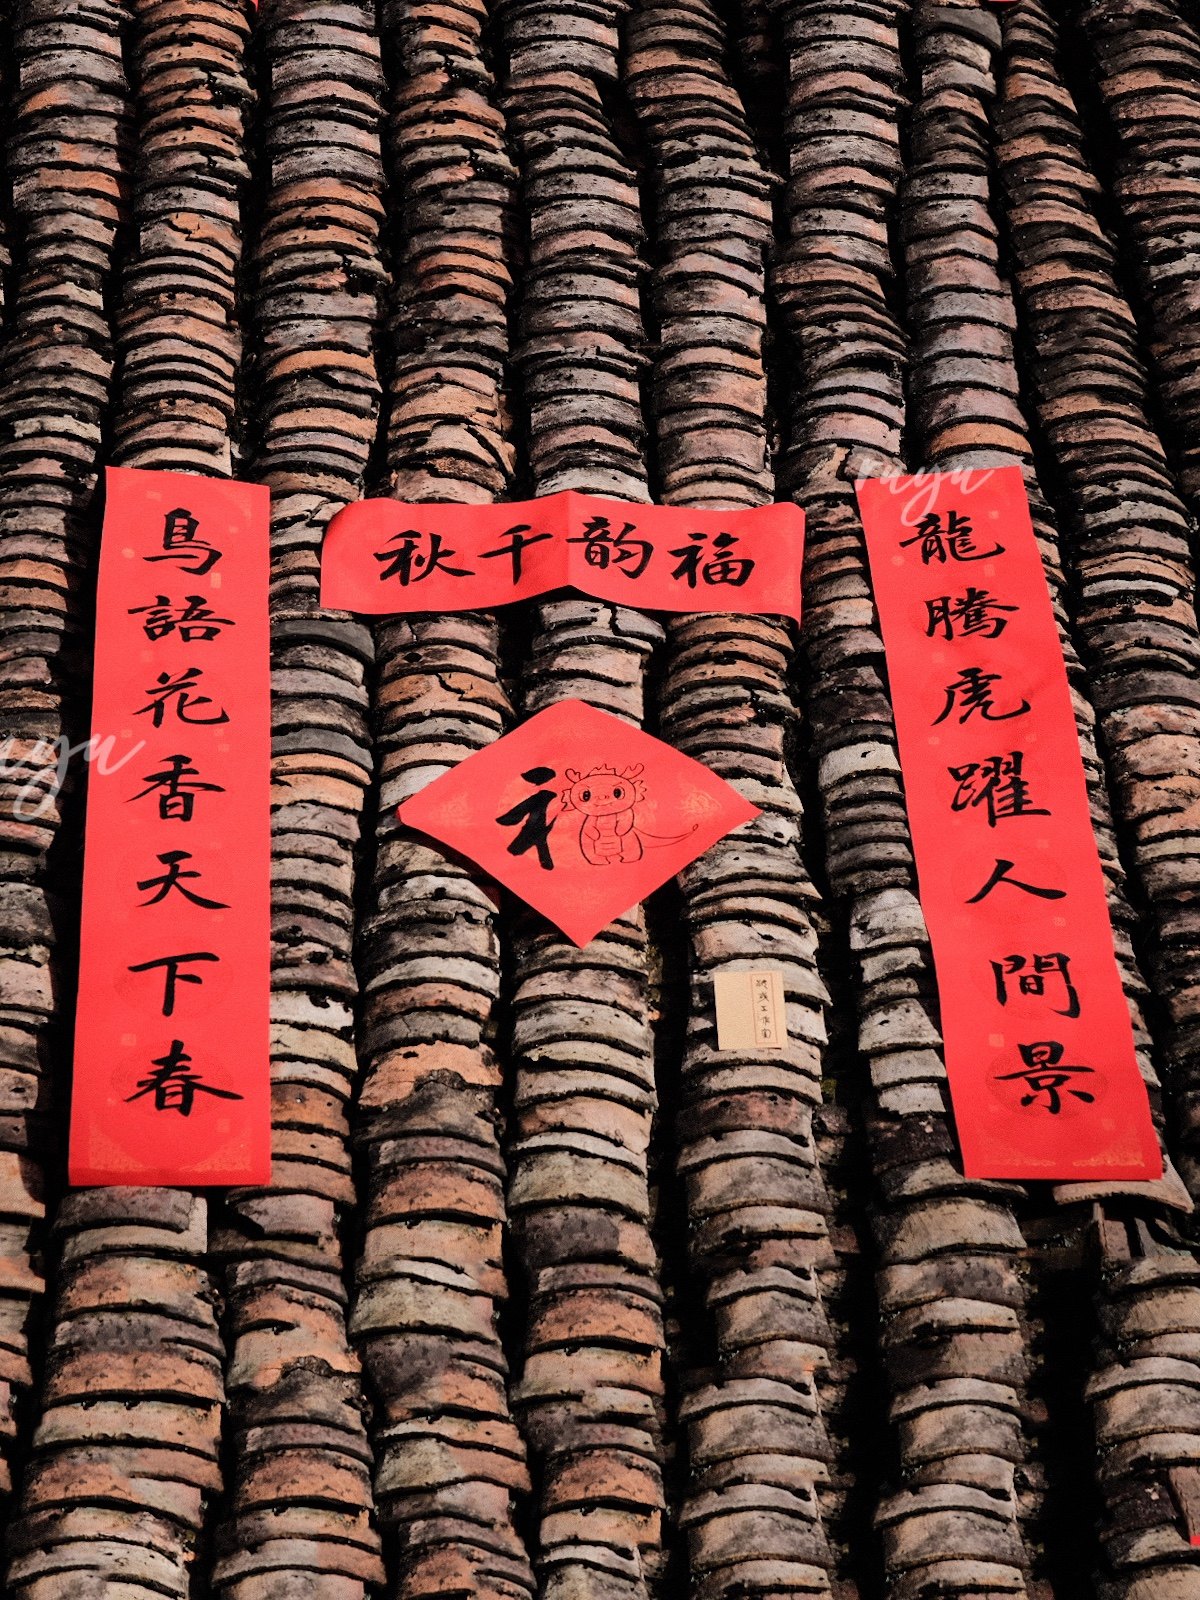 龍騰虎躍人間景
鳥語花香天下春
福韵千秋
ruyu